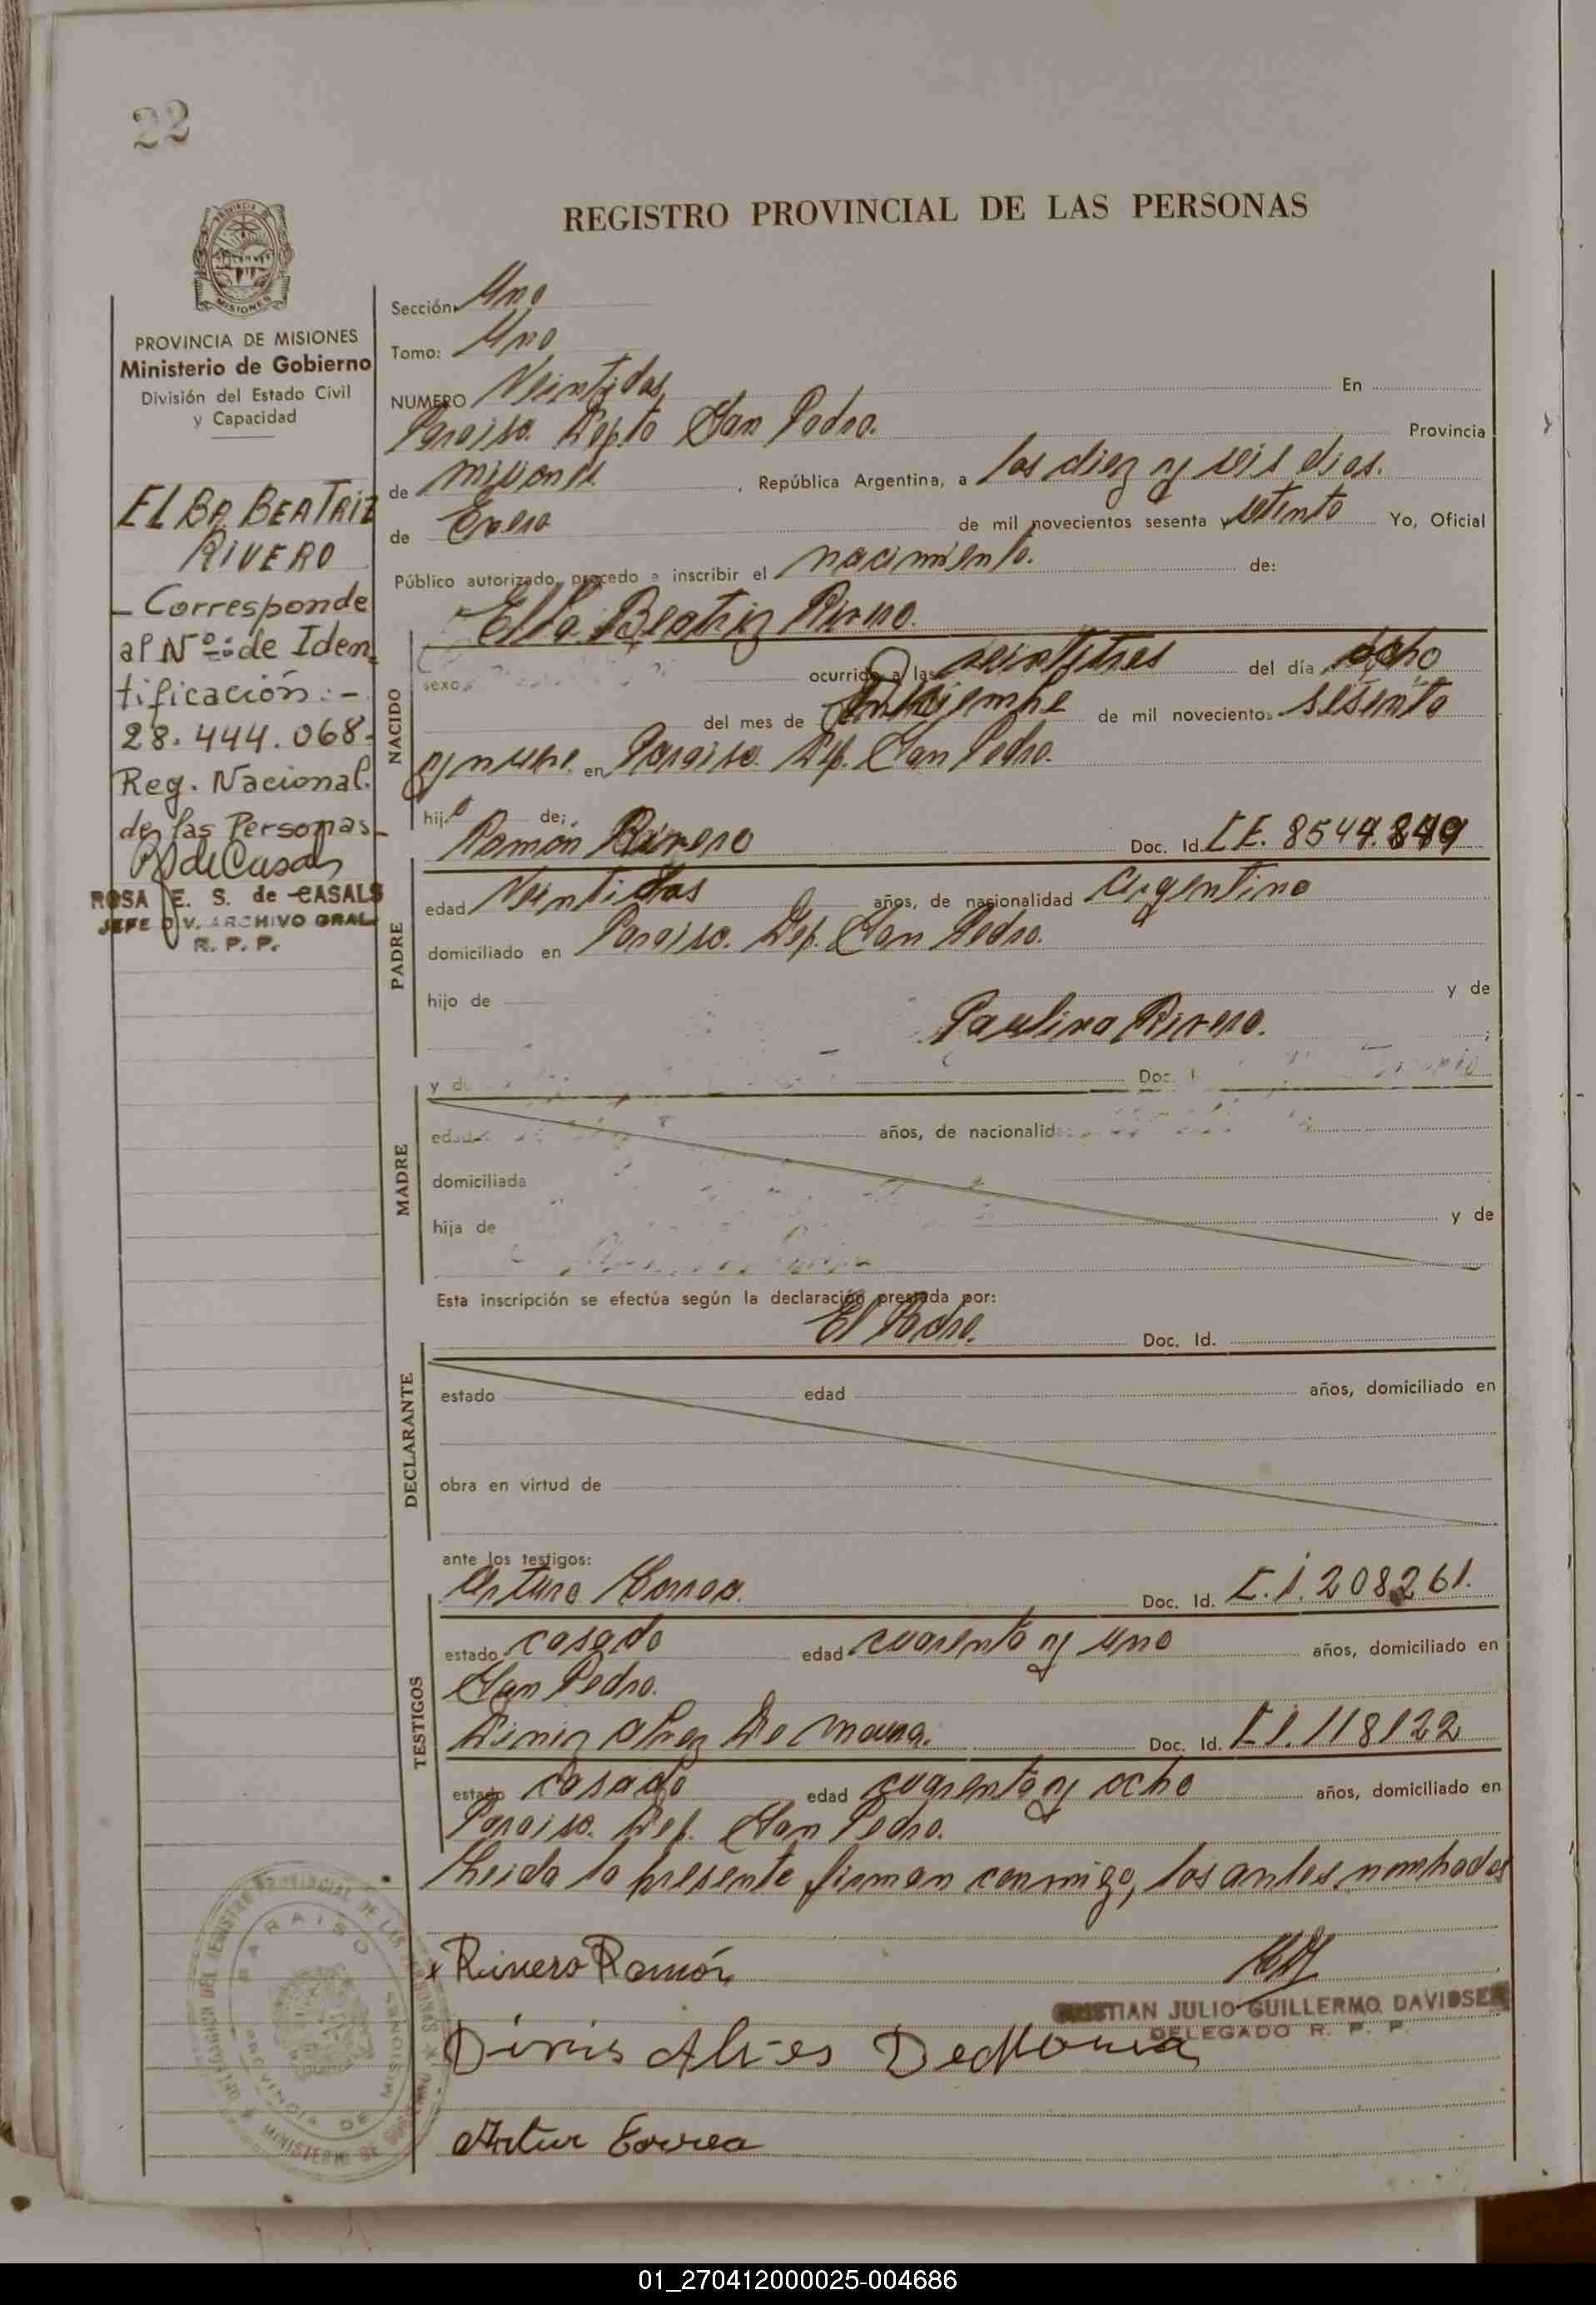 22
REGISTRO PROVINCIAL DE LAS PERSONAS
MISIONES
PROVINCIA DE MISIONES
Ministerio de Gobierno
División del Estado Civil
y Capacidad
ELBA BEATRIZ
RIVERO
- Corresponde
al Nº: de Iden
tificación: -
28.444.068.
Reg. Nacional.
de las Personas -
ROSA E. S. de CASALS
JEFE DIV. ARCHIVO GRAL
R. P. P.
Sección: Uno
Tomo: Uno
NUMERO Veintidos En
Paraiso. Depto San Pedro. Provincia
de Misiones , República Argentina, a los diez y seis dias.
de Enero de mil novecientos sesenta y setenta Yo, Oficial
Público autorizado, procedo a inscribir el nacimiento. de:
Elba Beatriz Rivero.
NACIDO
sexo ocurrido a las veintitres del día ocho
del mes de de mil novecientos sesenta
y nueve. en Paraiso. Dep. San Pedro.
hija de:
Ramón Rivero Doc. Id.
PADRE
edad Veintidos años, de nacionalidad Argentino
domiciliado en Paraiso. Dep. San Pedro.
hijo de y de
Paulina Rivero. ;
MADRE
y de Doc. I
edad años, de nacionalid
domiciliada
hija de y de
Esta inscripción se efectúa según la declaración prestada por:
El Padre. Doc. Id.
DECLARANTE
estado edad años, domiciliado en
obra en virtud de
ante los testigos:
Arturo Correa. Doc. Id. L.I. 208261.
TESTIGOS
estado casado edad cuarenta y uno años, domiciliado en
San Pedro.
Alvez De Moura. Doc. Id. L.I. 118122
estado casado edad cuarenta y ocho años, domiciliado en
Paraiso. Dep. San Pedro.
Leida la presente firman conmigo, los antes nombrados
x Rivero Ramón
CRISTIAN JULIO GUILLERMO DAVIDSEN
DELEGADO R. P. P.
Dinis Alves De Moura
Artur Correa
PARAISO
PROVINCIA DE MISIONES
01_270412000025-004686